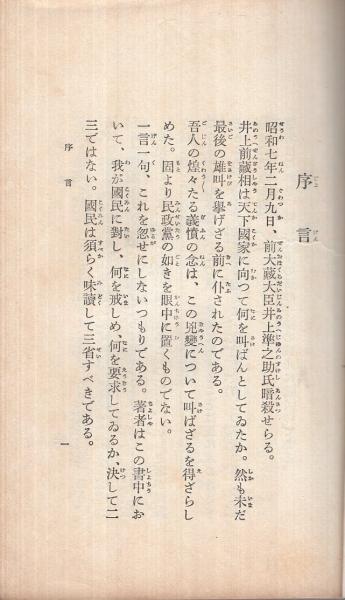 序言
昭和七年二月九日、前大藏大臣井上準之助氏暗殺せらる。
井上前藏相は天下國家に向つて何を叫ばんとしてゐたか。然も未だ
最後の雄叫を擧げざる前に仆されたのである。
吾人の煌々たる義憤の念は、この兇變について叫ばざるを得ざらし
めた。固より民政黨の如きを眼中に置くものでない。
一言一句、これを忽せにしないつもりである。著者はこの書中にお
いて、我が國民に對し、何を戒しめ、何を要求してゐるか、決して二
三ではない。國民は須らく味讀して三省すべきである。
序言
一